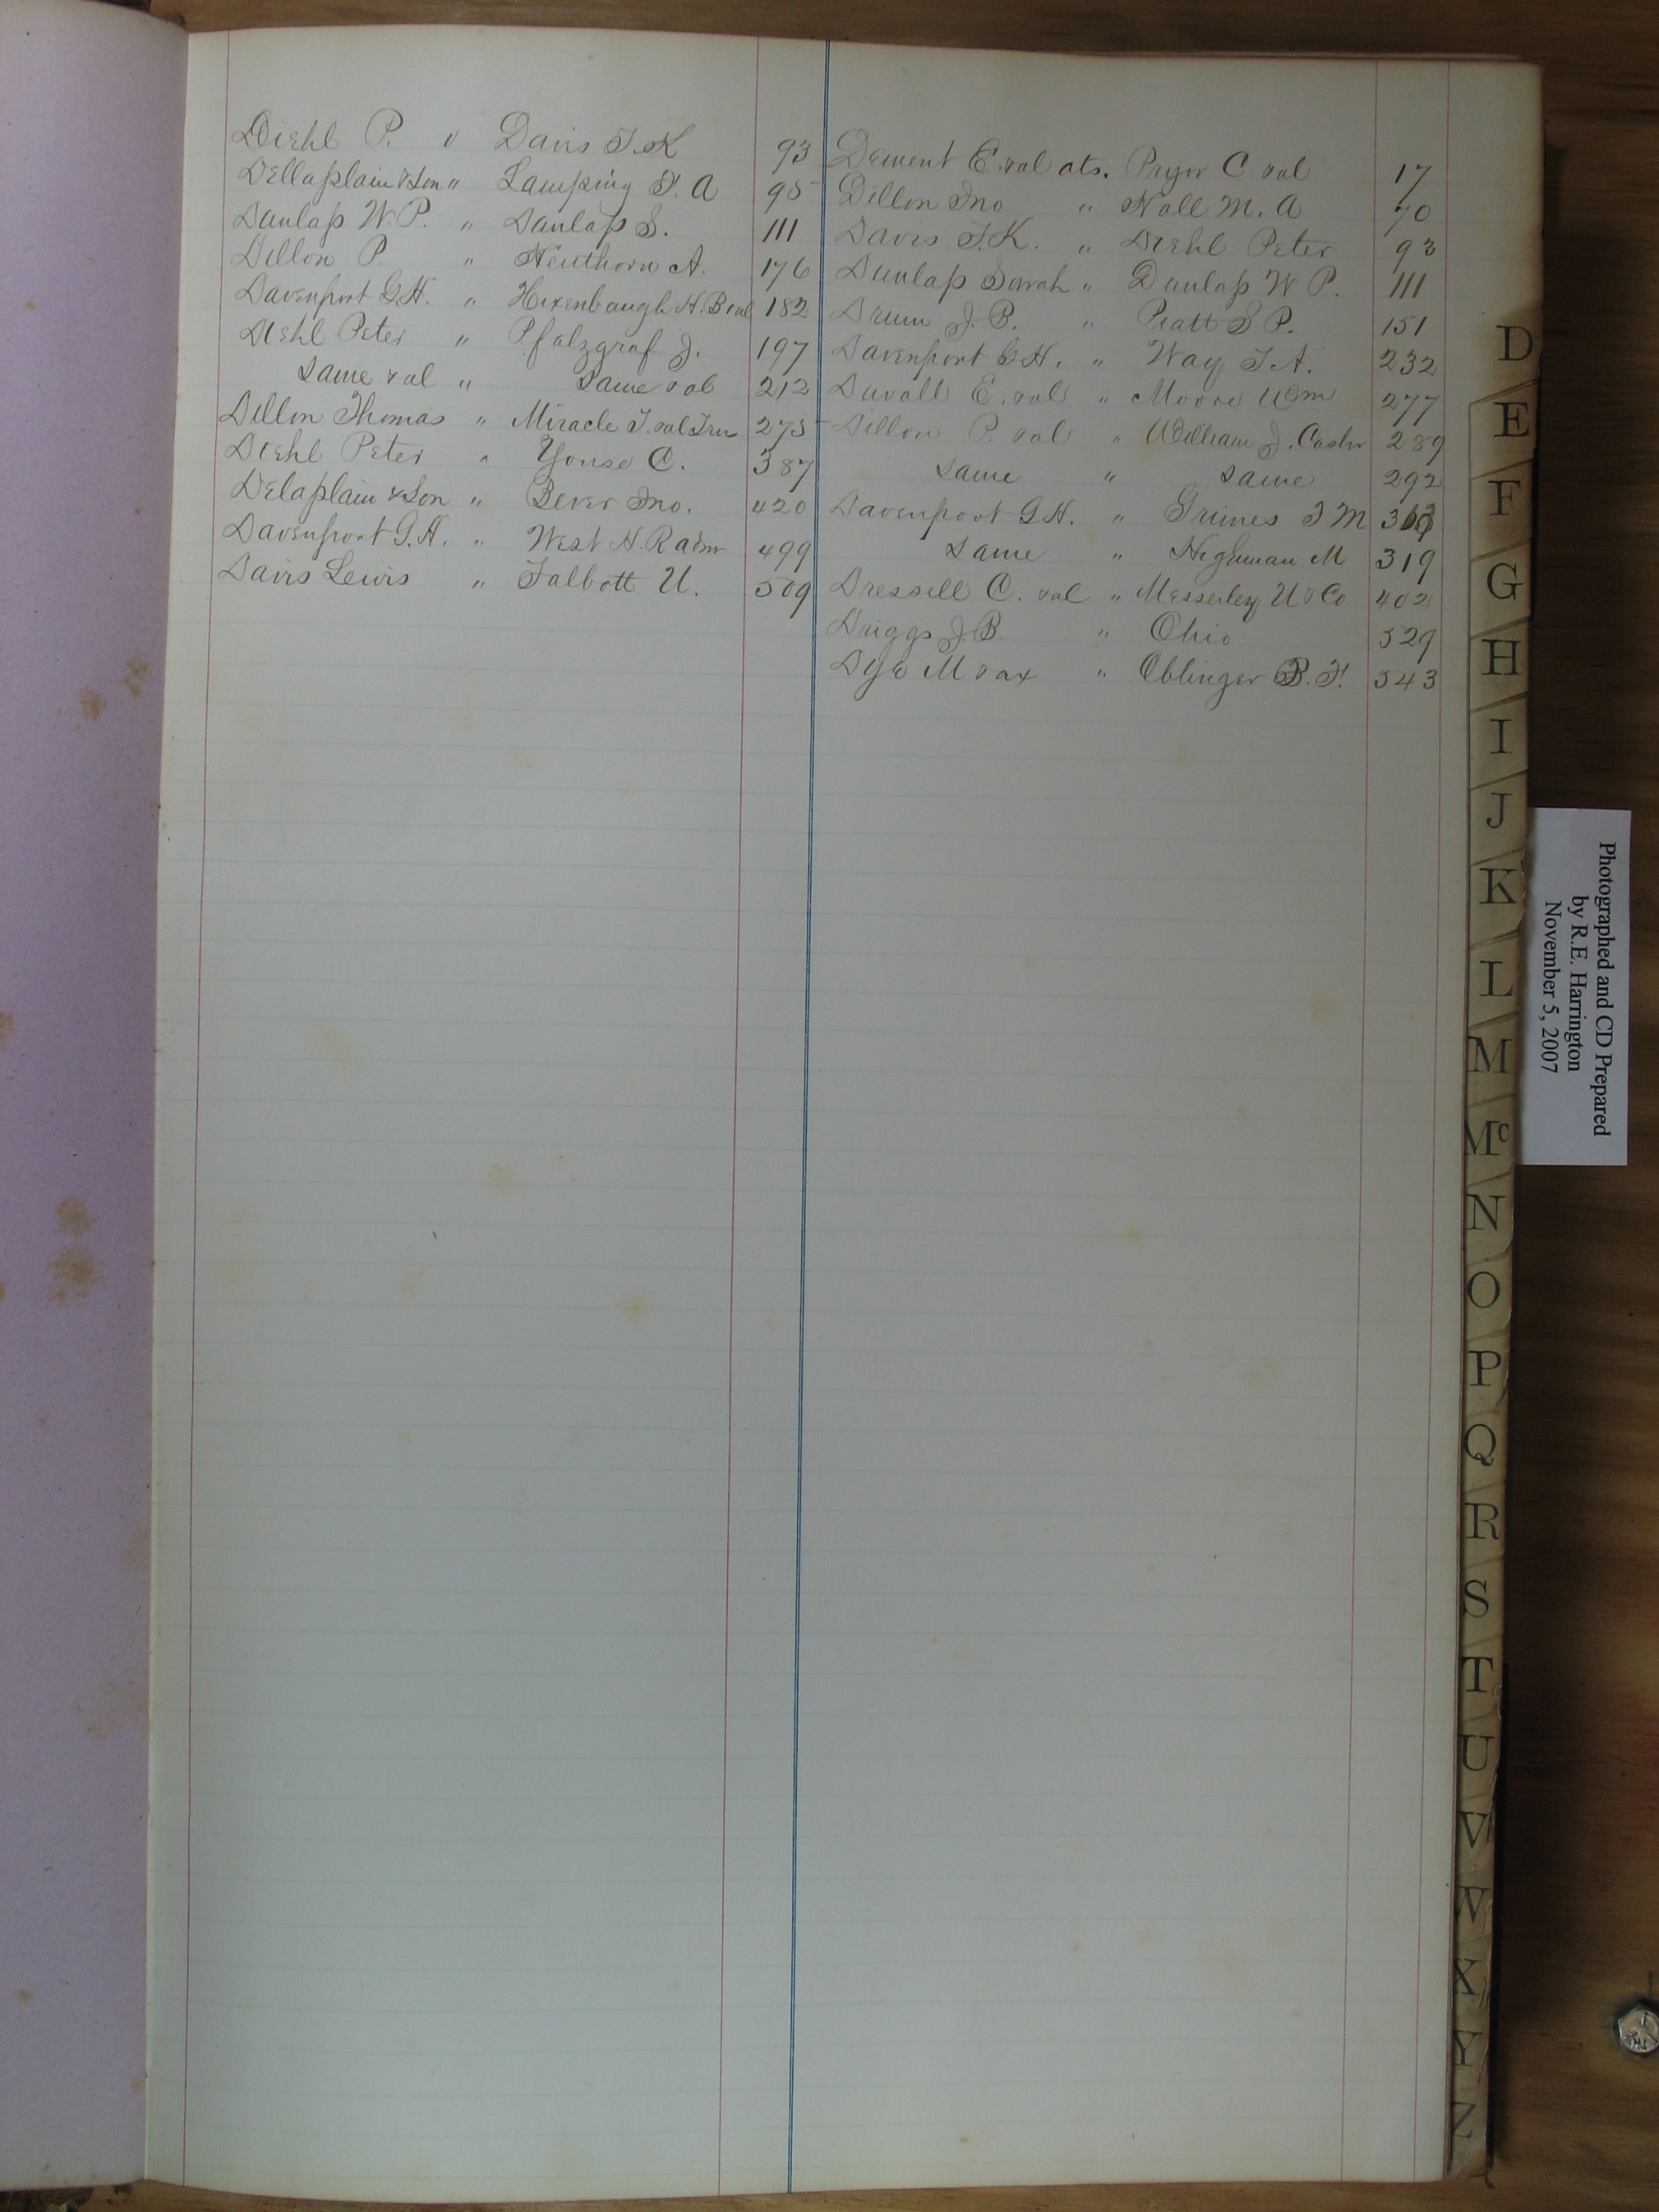 Diehl P. v Davis T.K 93
Dellaplain & Son " Lamping F. A 95
Dunlap W.P. " Dunlap S. 111
Dillon P. " Henthorn A. 176
Davenport G.H. " Hixenbaugh H.B & al 182
Diehl Peter " Pfalzgraf J. 197
Same & al " Same & al 212
Dillon Thomas " Miracle T. & al 275
Diehl Peter " Yonse C. 387
Delaplain & Son " Bever Jno. 420
Davenport G.H. " West H.R adm 499
Davis Lewis " Talbott U. 509
Dement E. & al ats. Pryor C. & al 17
Dillon Jno " Hall M. A 70
Davis T.K. " Diehl Peter 93
Dunlap Sarah " Dunlap W P. 111
Drum J.B. " Pratt S P. 151
Davenport G.H. " Way T.A. 232
Duvall E. & al " Moore Wm 277
Dillon P. & al " William J. Cashr 289
Same " Same 292
Davenport G.H. " Grimes T M
Same " M 319
Dressell C. & al " Messerley U & Co 402
Driggs J.B. " Ohio 529
Dye M & ax " Oblinger B.F. 543
D
E
F
G
H
I
J
K
L
M
Mc
N
O
P
Q
R
S
T
U
V
W
X
Y
Z
Photographed and CD Prepared
by R.E. Harrington
November 5, 2007